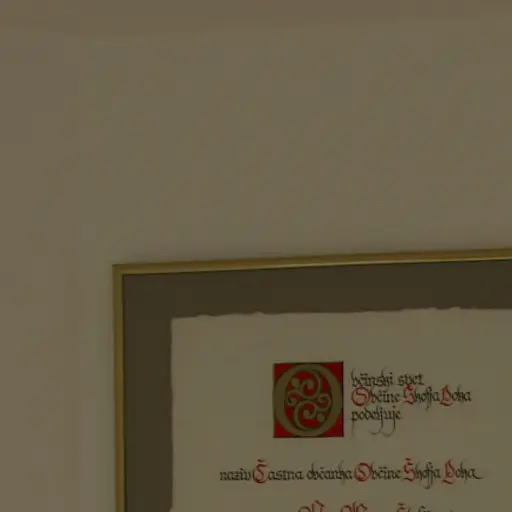 Občinski svet
Občine Škofja Loka
podeljuje
naziv Častna občanka Občine Škofja Loka